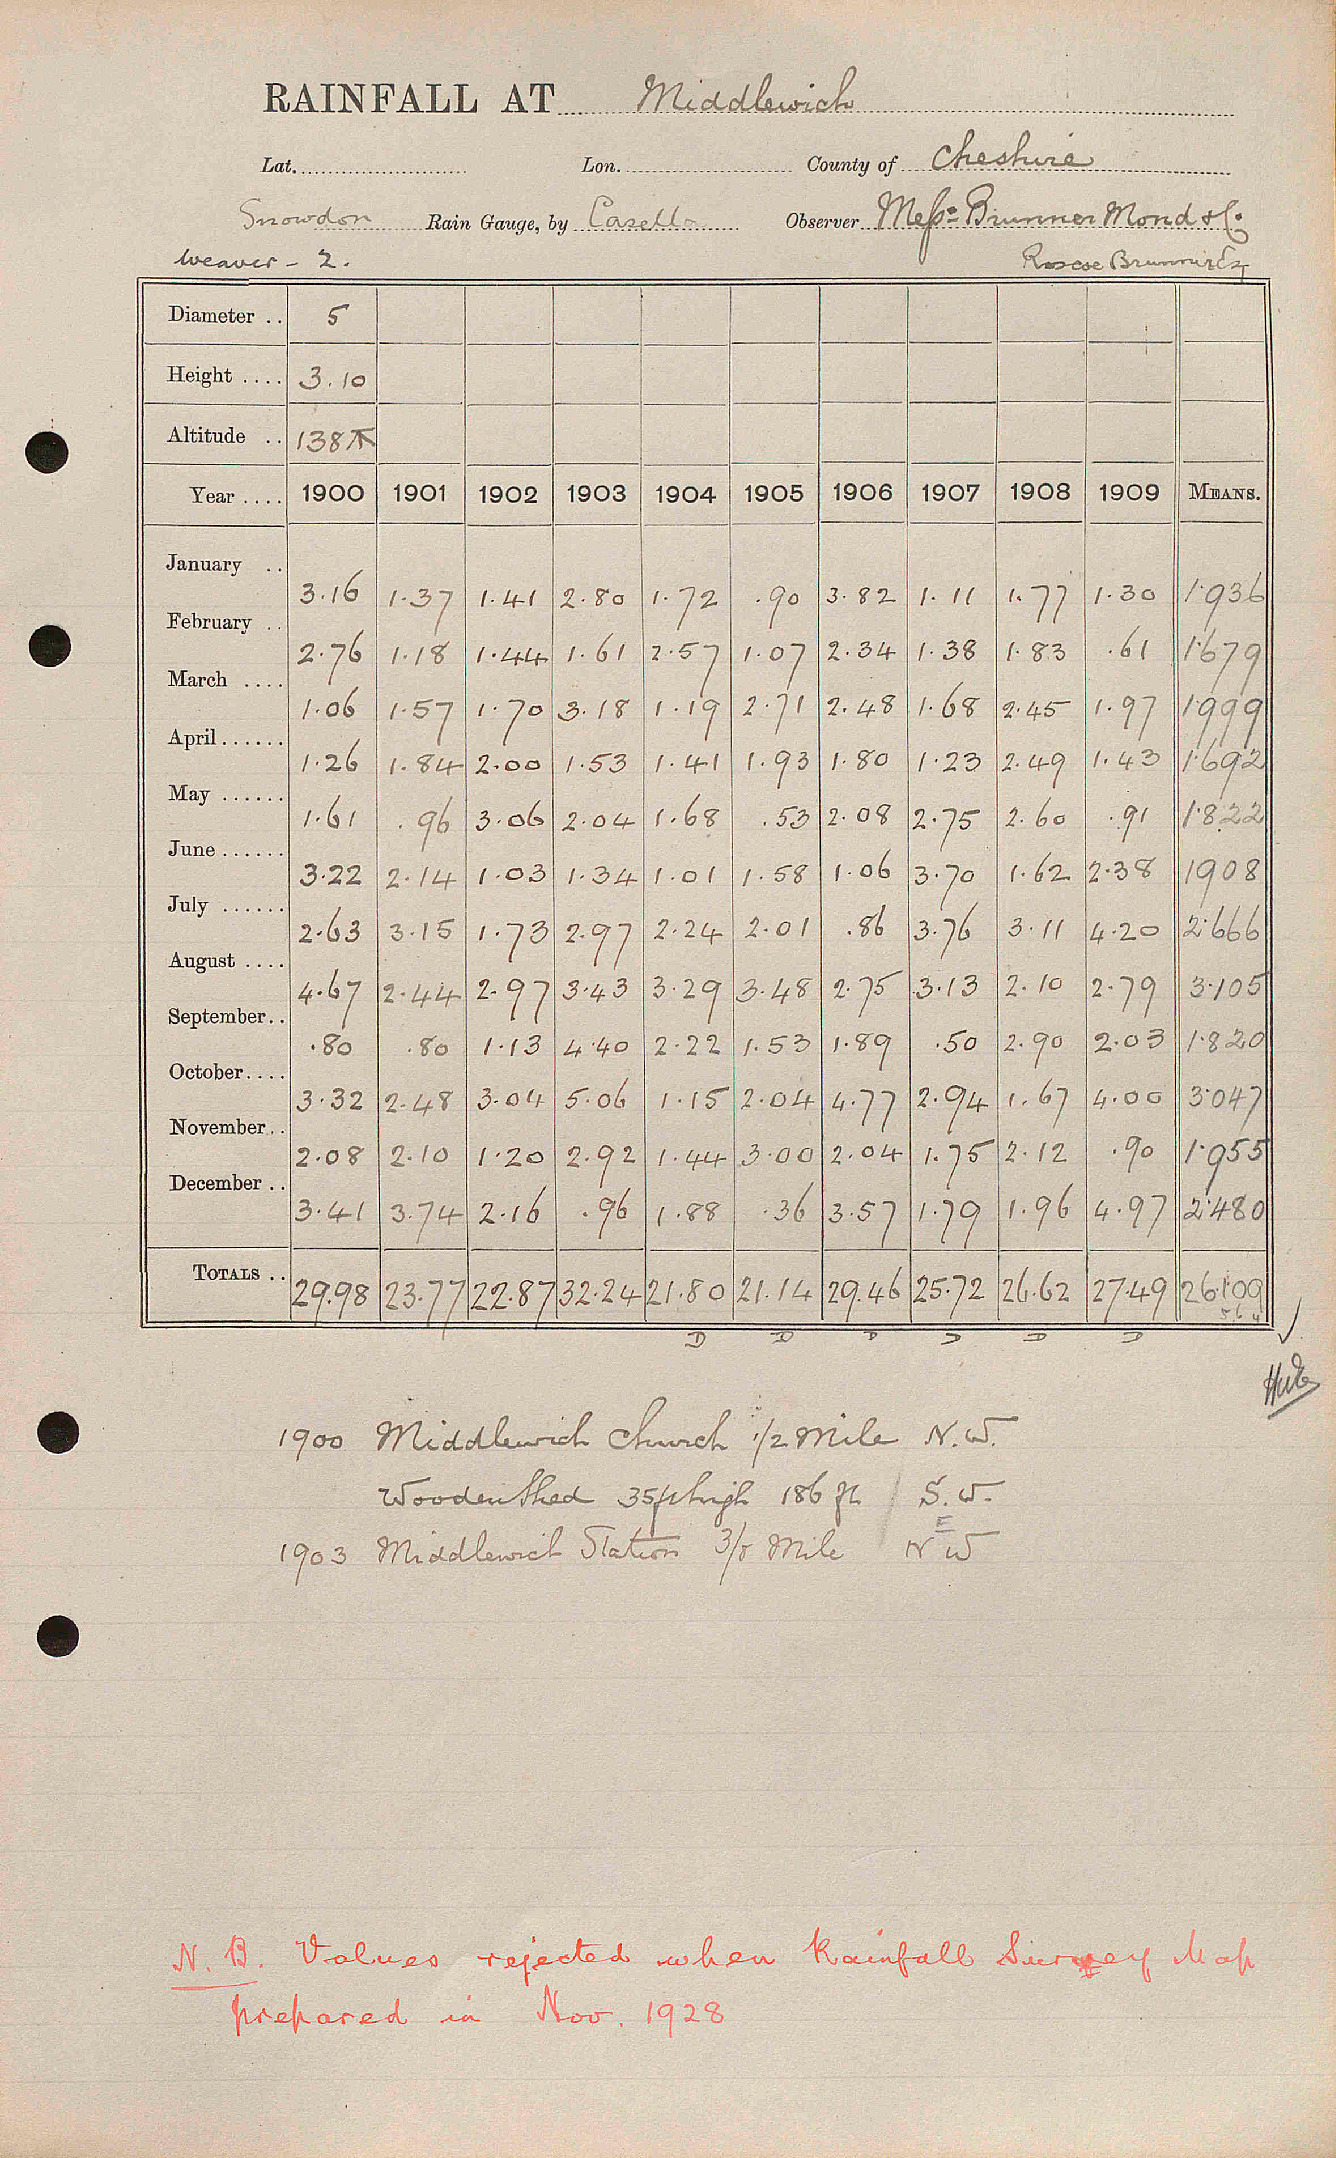 RAINFALL AT Middlewich
Lat. Lon. County of Cheshire
Snowdon Rain Gauge, by Casella Observer Messrs Brunner Mond & Co.
Weaver - 2. Roscoe Brunner Esq
Diameter .. 5
Height .... 3.10
Altitude .. 138
Year .... 1900 1901 1902 1903 1904 1905 1906 1907 1908 1909 MEANS.
January .. 3.16 1.37 1.41 2.80 1.72 .90 3.82 1.11 1.77 1.30 1.936
February .. 2.76 1.18 1.44 1.61 2.57 1.07 2.34 1.38 1.83 .61 1.679
March .... 1.06 1.57 1.70 3.18 1.19 2.71 2.48 1.68 2.45 1.97 1999
April...... 1.26 1.84 2.00 1.53 1.41 1.93 1.80 1.23 2.49 1.43 1.692
May ...... 1.61 .96 3.06 2.04 1.68 .53 2.08 2.75 2.60 .91 1.822
June ...... 3.22 2.14 1.03 1.34 1.01 1.58 1.06 3.70 1.62 2.38 1908
July ...... 2.63 3.15 1.73 2.97 2.24 2.01 .86 3.76 3.11 4.20 2.666
August .... 4.67 2.44 2.97 3.43 3.29 3.48 2.75 3.13 2.10 2.79 3.105
September.. .80 .80 1.13 4.40 2.22 1.53 1.89 .50 2.90 2.03 1.820
October.... 3.32 2.48 3.04 5.06 1.15 2.04 4.77 2.94 1.67 4.00 3.047
November.. 2.08 2.10 1.20 2.92 1.44 3.00 2.04 1.75 2.12 .90 1.955
December .. 3.41 3.74 2.16 .96 1.88 .36 3.57 1.79 1.96 4.97 2.480
TOTALS .. 29.98 23.77 22.87 32.24 21.80 21.14 29.46 25.72 26.62 27.49 26.109
D D D D D D
1900 Middlewich Church 1/2 Mile N.W.
Wooden Shed 35ft high 186 ft S.W.
1903 Middlewich Station 3/8 Mile N W
E
N.B. Values rejected when Rainfall Survey Map
prepared in Nov. 1928